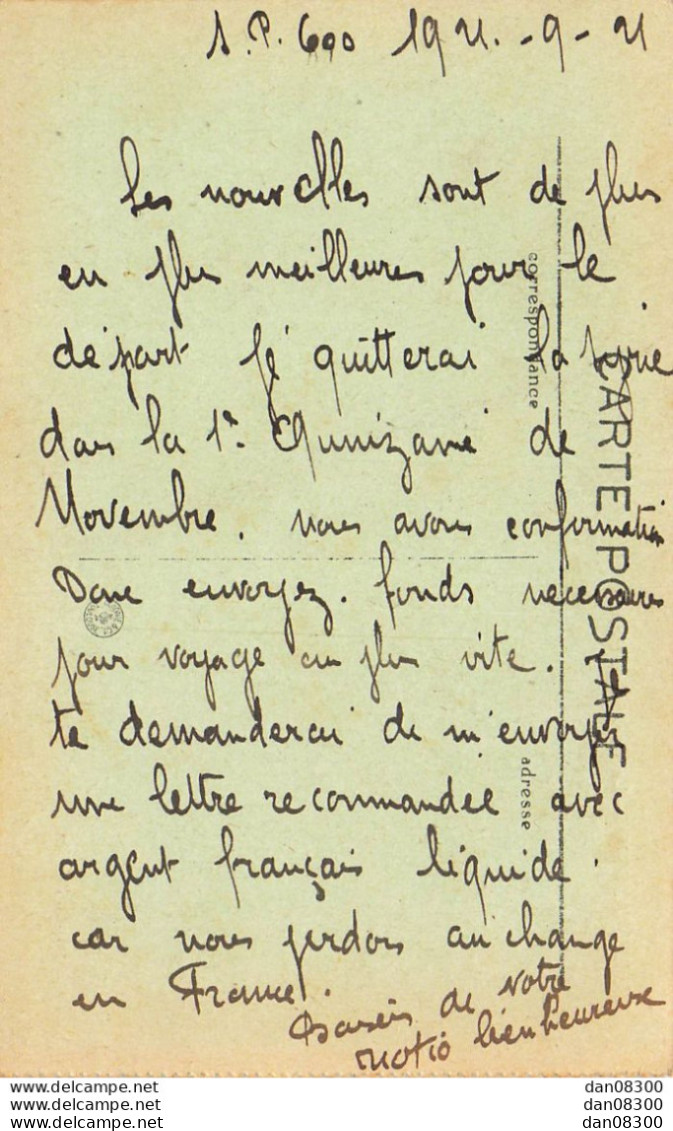 S. P. 600 1921. - 9 - 21
Les nouvelles sont de plus
en plus meilleures pour le
départ Je quitterai la Syrie
dans la 1e Quinzaine de
Novembre. nous avons confirmation
Donc envoyez. fonds necessaires
pour voyage au plus vite. Je
te demanderai de m'envoyer
une lettre recommandée avec
argent français liquide.
car nous perdons au change
en France.
Baisers de votre
bienheureuse
correspondance
CARTE POSTALE
adresse
dan08300
dan08300
dan08300
https://www.delcampe.net
https://www.delcampe.net
https://www.delcampe.net